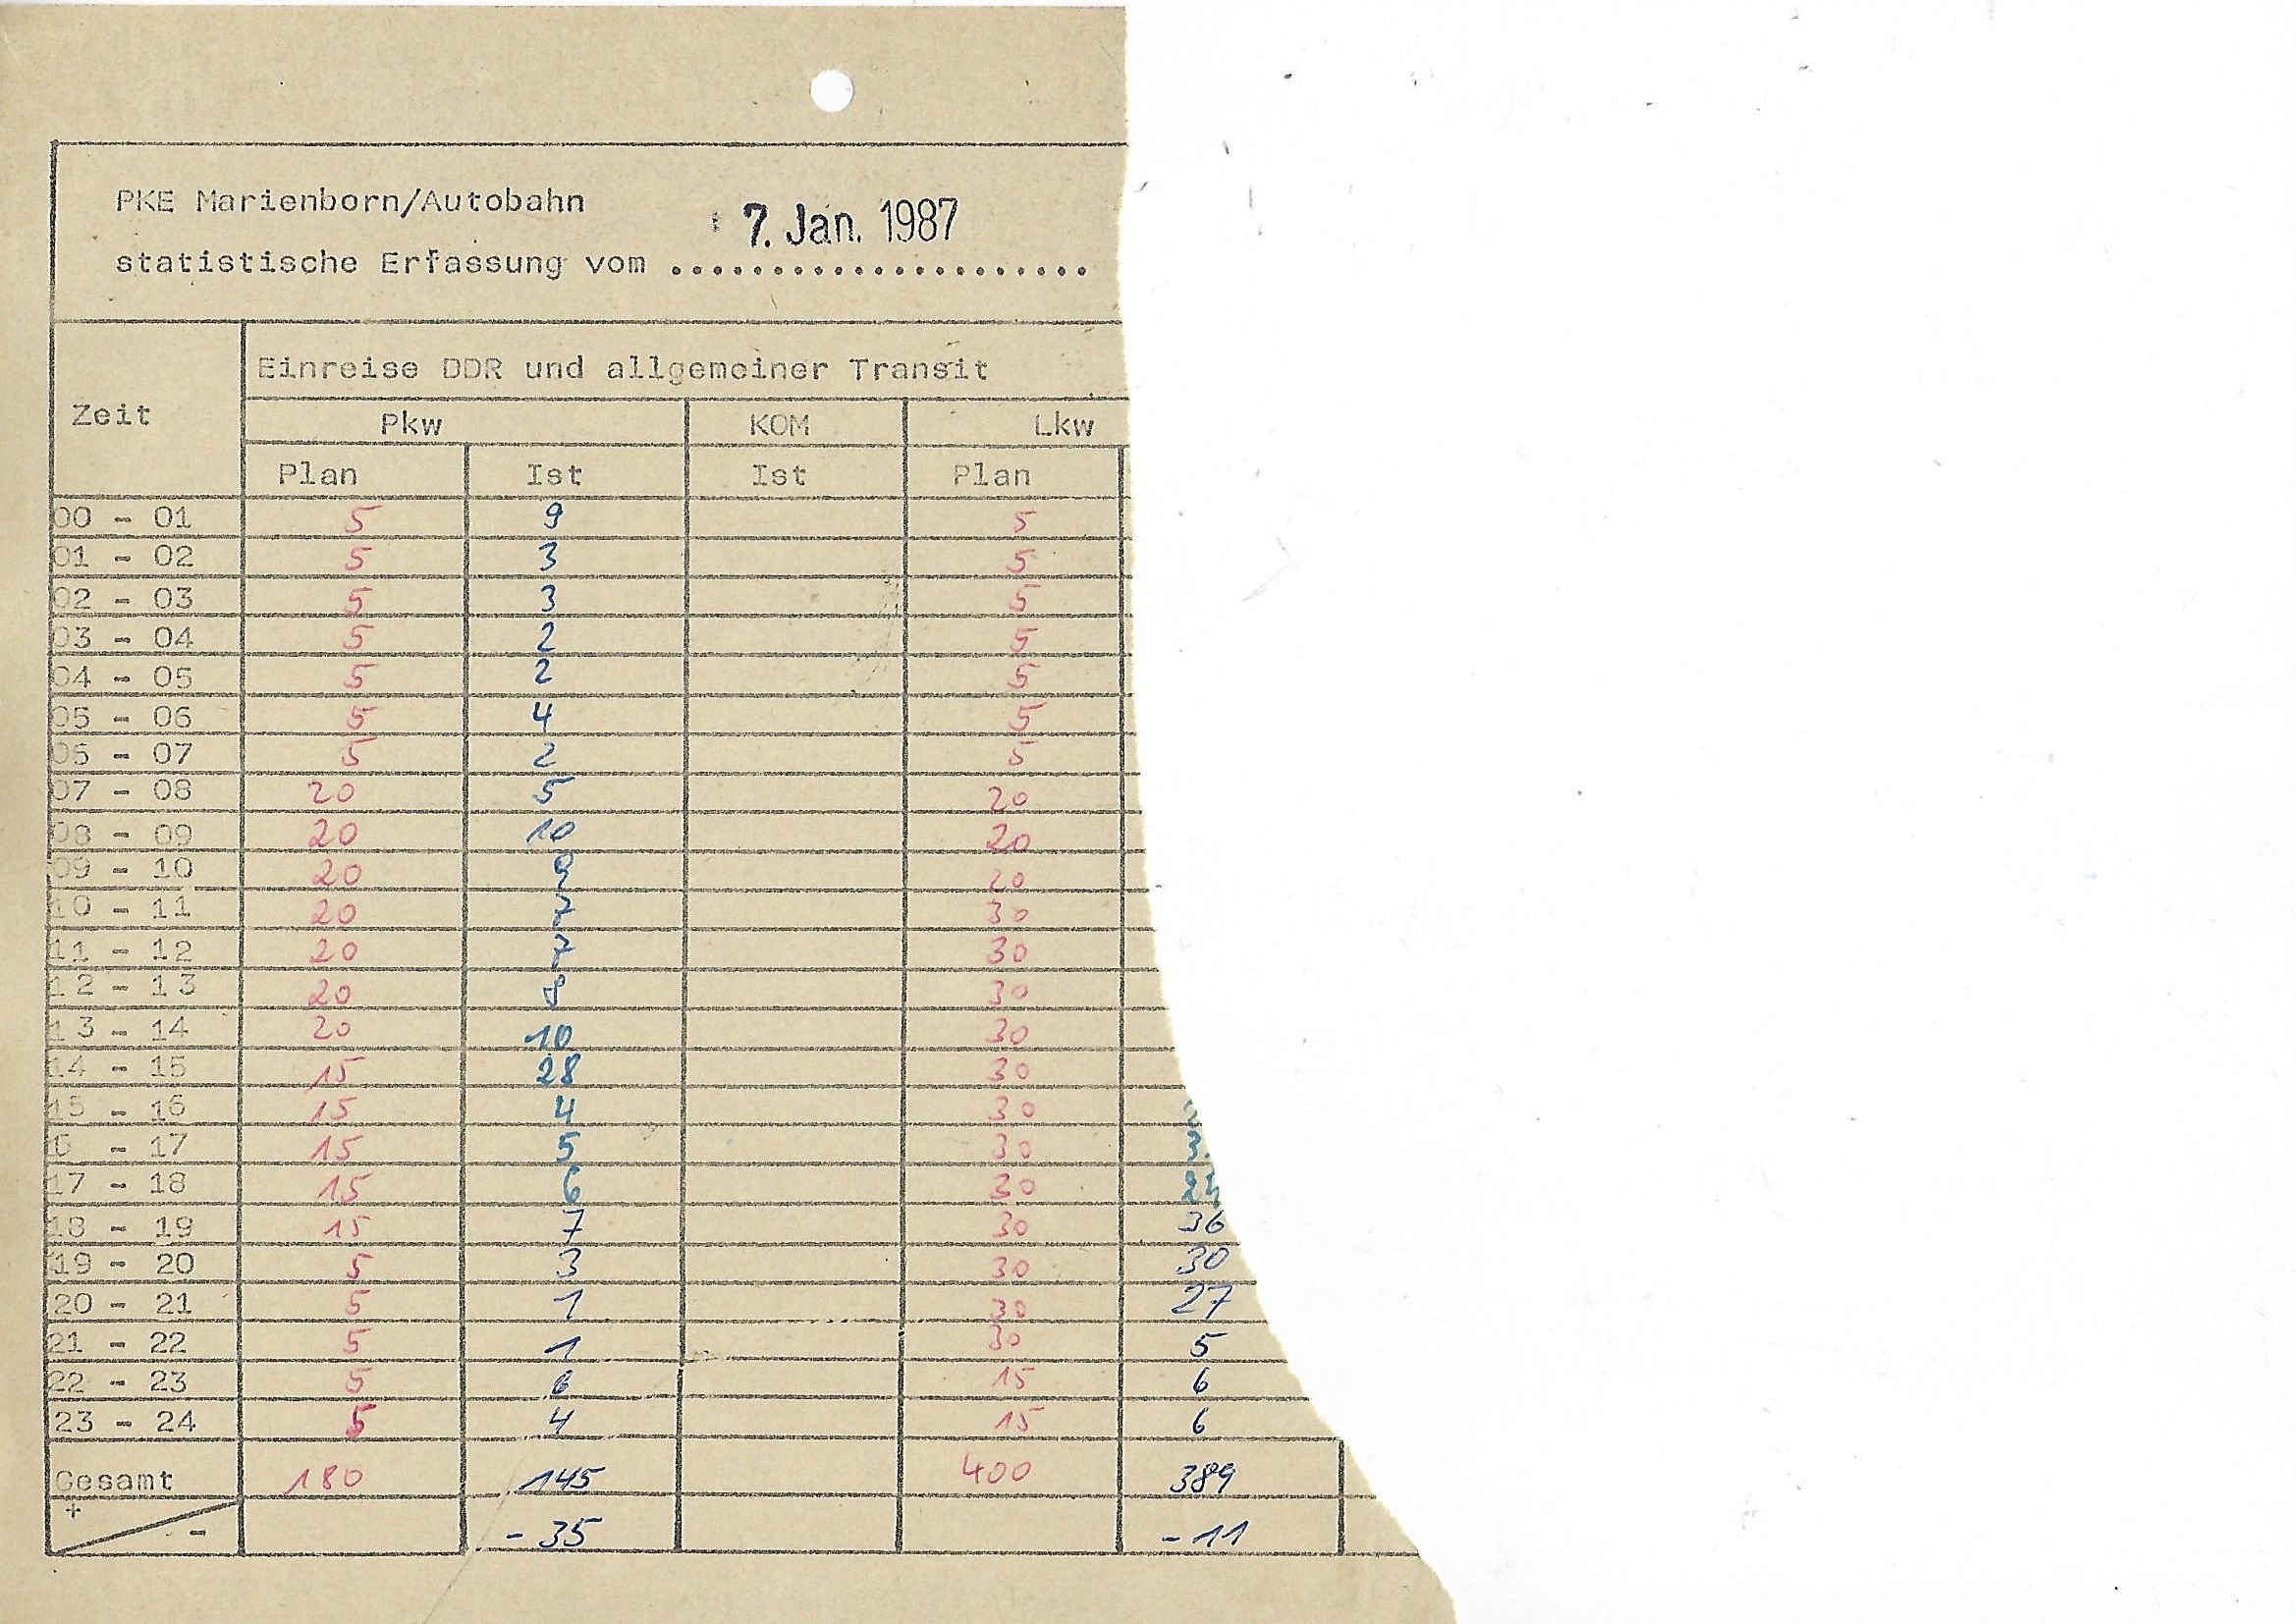 PKE Marienborn/Autobahn
7. Jan. 1987
statistische Erfassung vom .....................
Zeit
Einreise DDR und allgemeiner Transit
Pkw KOM Lkw
Plan Ist Ist Plan
00 - 01 5 9 5
01 - 02 5 3 5
02 - 03 5 3 5
03 - 04 5 2 5
04 - 05 5 2 5
05 - 06 5 4 5
06 - 07 5 2 5
07 - 08 20 5 20
08 - 09 20 10 20
09 - 10 20 9 20
10 - 11 20 7 30
11 - 12 20 7 30
12 - 13 20 8 30
13 - 14 20 10 30
14 - 15 15 28 30
15 - 16 15 4 30
- 17 15 5 30
17 - 18 15 6 30
18 - 19 15 7 30 36
19 - 20 5 3 30 30
20 - 21 5 1 30 27
21 - 22 5 1 30 5
22 - 23 5 6 15 6
23 - 24 5 4 15 6
Gesamt 180 145 400 389
+ - - 35 - 11